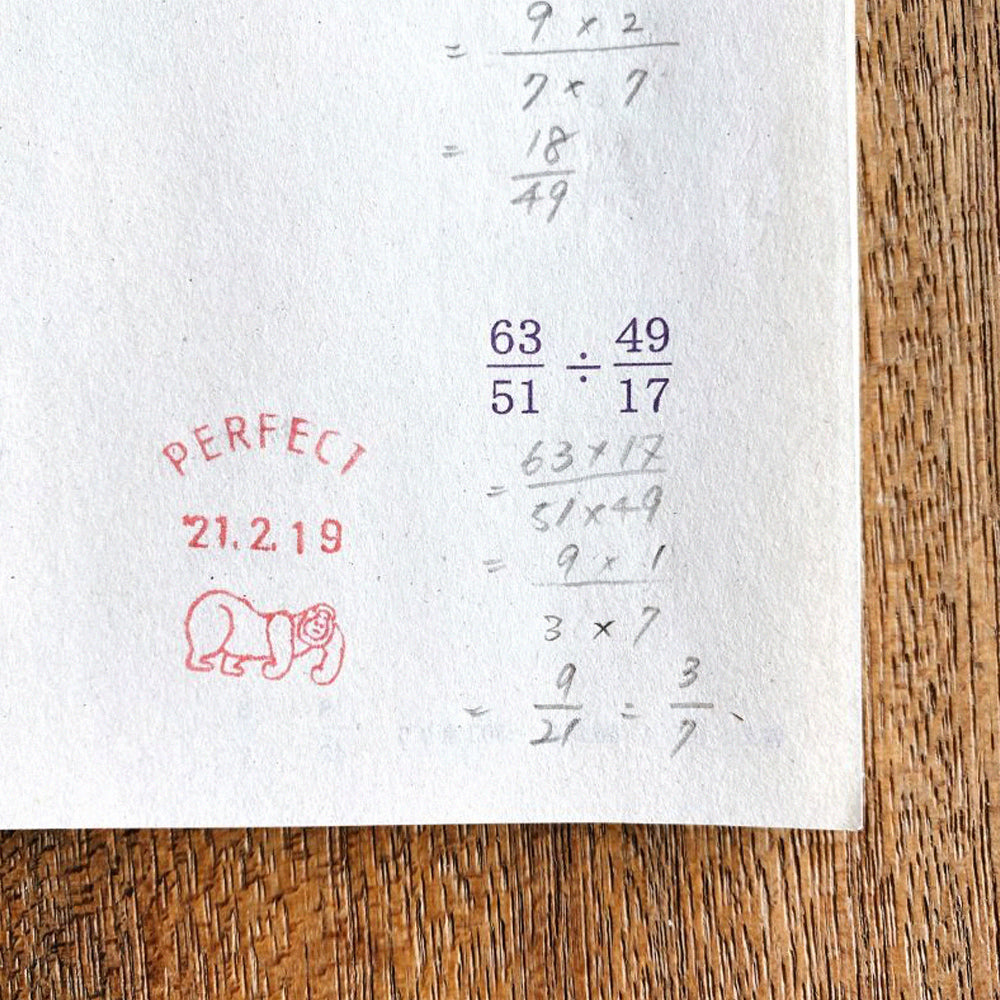 = 9 × 2
7 × 7
= 18
49
63 ÷ 49
51 17
= 63×17
51×49
= 9 × 1
3 × 7
= 9 = 3
21 7
PERFECT
'21.2.19